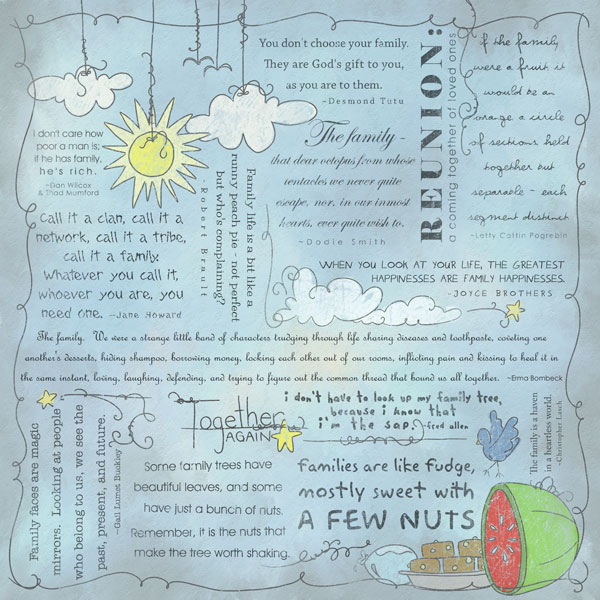 You don't choose your family.
They are God's gift to you,
as you are to them.
~Desmond Tutu
REUNION:
a coming together of loved ones
if the family
were a fruit it
would be an
orange a circle
of sections held
together but
separable - each
segment distinct
~Letty Cottin Pogrebin
I don't care how
poor a man is;
if he has family,
he's rich.
~Dan Wilcox
& Thad Mumford
The family -
that dear octopus from whose
tentacles we never quite
escape, nor, in our inmost
hearts, ever quite wish to.
~Dodie Smith
Family life is a bit like a
runny peach pie - not perfect
but who's complaining?
Robert Brault
call it a clan, call it a
network, call it a tribe,
call it a family.
Whatever you call it,
whoever you are, you
need one. ~Jane Howard
WHEN YOU LOOK AT YOUR LIFE, THE GREATEST
HAPPINESSES ARE FAMILY HAPPINESSES.
~JOYCE BROTHERS
The family. We were a strange little band of characters trudging through life sharing diseases and toothpaste, coveting one
another's desserts, hiding shampoo, borrowing money, locking each other out of our rooms, inflicting pain and kissing to heal it in
the same instant, loving, laughing, defending, and trying to figure out the common thread that bound us all together. ~Erma Bombeck
Family faces are magic
mirrors. Looking at people
who belong to us, we see the
past, present, and future.
~Gail Lumet Buckley
Together
AGAIN
i don't have to look up my family tree,
because i know that
i'm the sap. ~fred allen
The family is a haven
in a heartless world.
~Christopher Lasch
Some family trees have
beautiful leaves, and some
have just a bunch of nuts.
Remember, it is the nuts that
make the tree worth shaking.
Families are like fudge,
mostly sweet with
A FEW NUTS